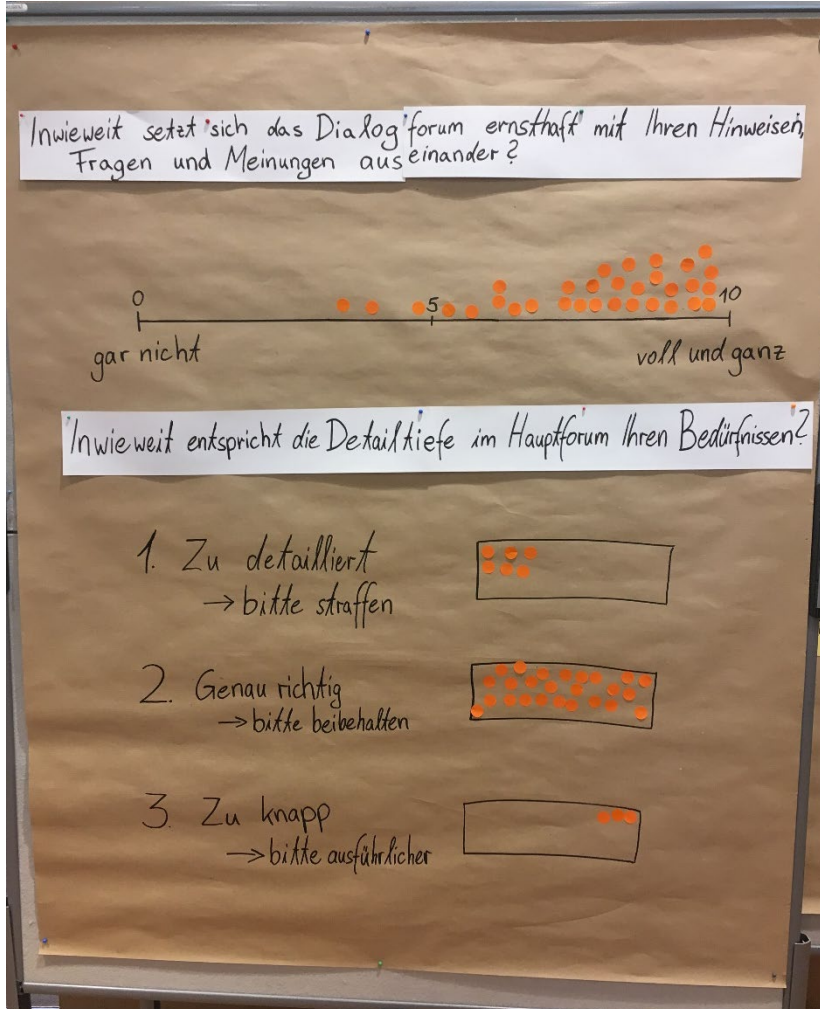 Inwieweit setzt sich das Dialogforum ernsthaft mit Ihren Hinweisen,
Fragen und Meinungen auseinander?
0 5 10
gar nicht voll und ganz
Inwieweit entspricht die Detailtiefe im Hauptforum Ihren Bedürfnissen?
1. Zu detailliert
→ bitte straffen
2. Genau richtig
→ bitte beibehalten
3. Zu knapp
→ bitte ausführlicher